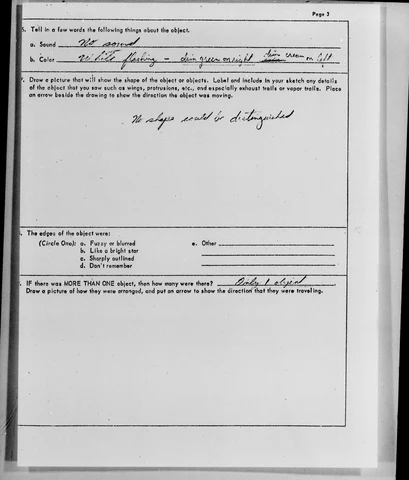 Page 3
5. Tell in a few words the following things about the object.
a. Sound No sound
b. Color White flashing - dim green on right dim cream on left
Draw a picture that will show the shape of the object or objects. Label and include in your sketch any details
of the object that you saw such as wings, protrusions, etc., and especially exhaust trails or vapor trails. Place
an arrow beside the drawing to show the direction the object was moving.
No shape could be distinguished
The edges of the object were:
(Circle One): a. Fuzzy or blurred e. Other
b. Like a bright star
c. Sharply outlined
d. Don't remember
IF there was MORE THAN ONE object, then how many were there? Only 1 object
Draw a picture of how they were arranged, and put an arrow to show the direction that they were traveling.